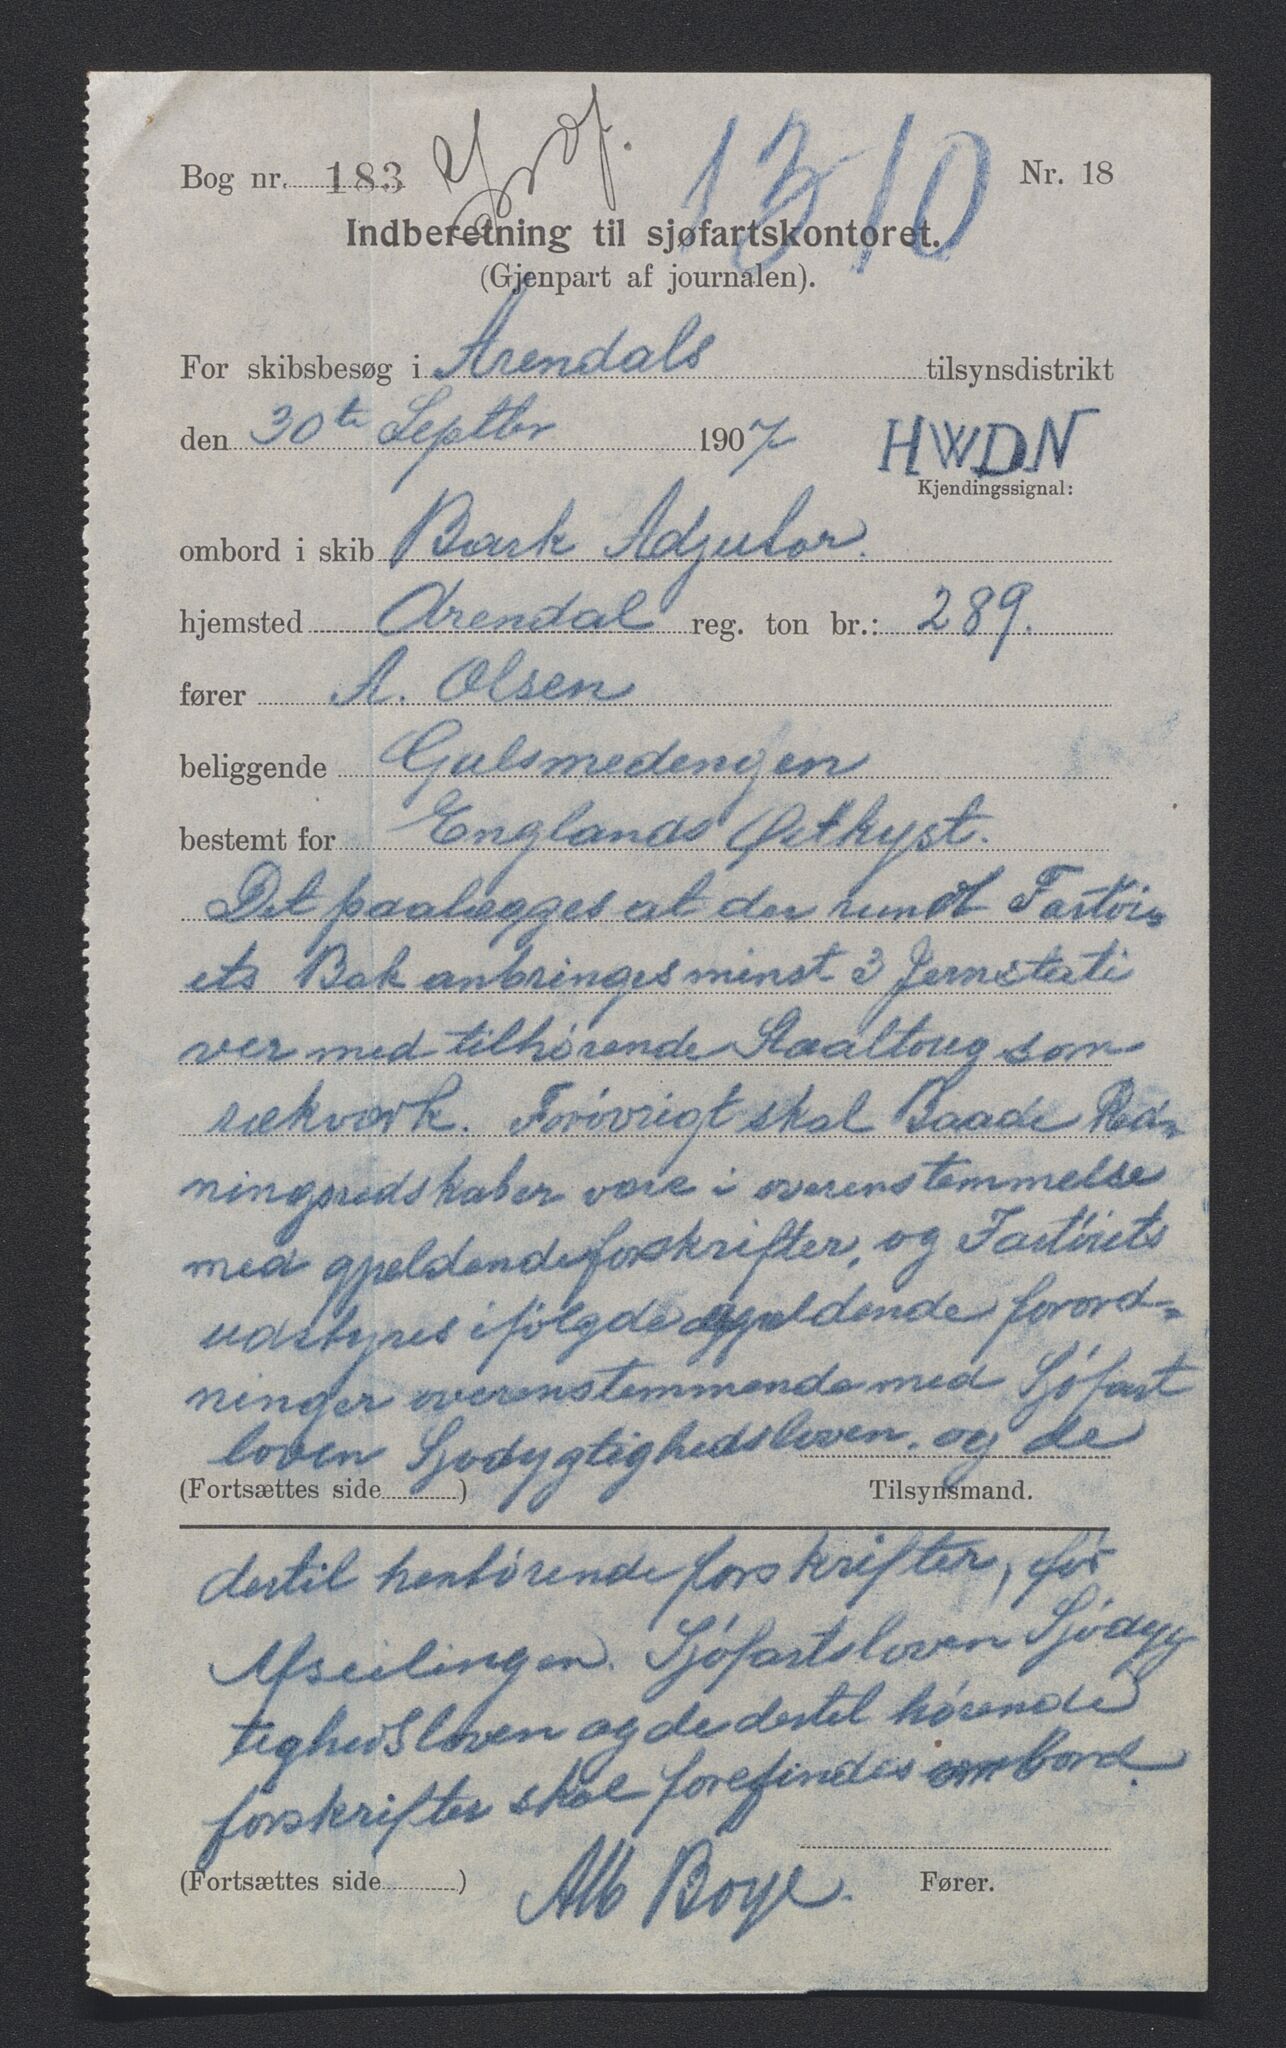 Bog nr. 183
1310
Nr. 18
Indberetning til sjøfartskontoret.
(Gjenpart af journalen).
For skibsbesøg i Arendals tilsynsdistrikt
den 30te Septbr 1907
HWDN
Kjendingssignal:
ombord i skib Bark Adjutor.
hjemsted Arendal reg. ton br.: 289.
fører A. Olsen
beliggende Gulsmedengen
bestemt for Englands Østkyst.
Det paalægges at der rundt Fartöi-
ets Bak anbringes minst 3 Jernstati
ver med tilhörende Staaltoug som
rækværk. Foróvrigt skal Baade Red-
ningsredskaber være i overenstemmelse
med gjældende forskrifter, og Fartöiets
udstyres ifölgde gjældende forord-
ninger overenstemmende med Sjófart
loven Sjodygtighedsloven. og de
(Fortsættes side ) Tilsynsmand.
dertil henhörende forskrifter, för
Afseilingen. Sjófartsloven Sjódyg
tighedsloven og de dertil hörende
forskrifter skal forefindes ombord.
(Fortsættes side ) Alb Boye. Fører.